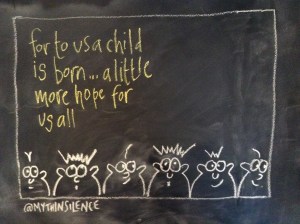 for to us a child
is born... a little
more hope for
us all
@MYTHINSILENCE